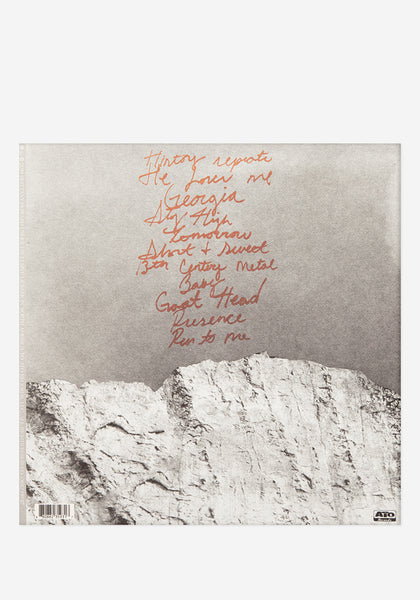 History repeats
He Loves me
Georgia
Stay High
Tomorrow
Short + Sweet
13th Century Metal
Baby
Goat Head
Presence
Run to me
ATO
Records